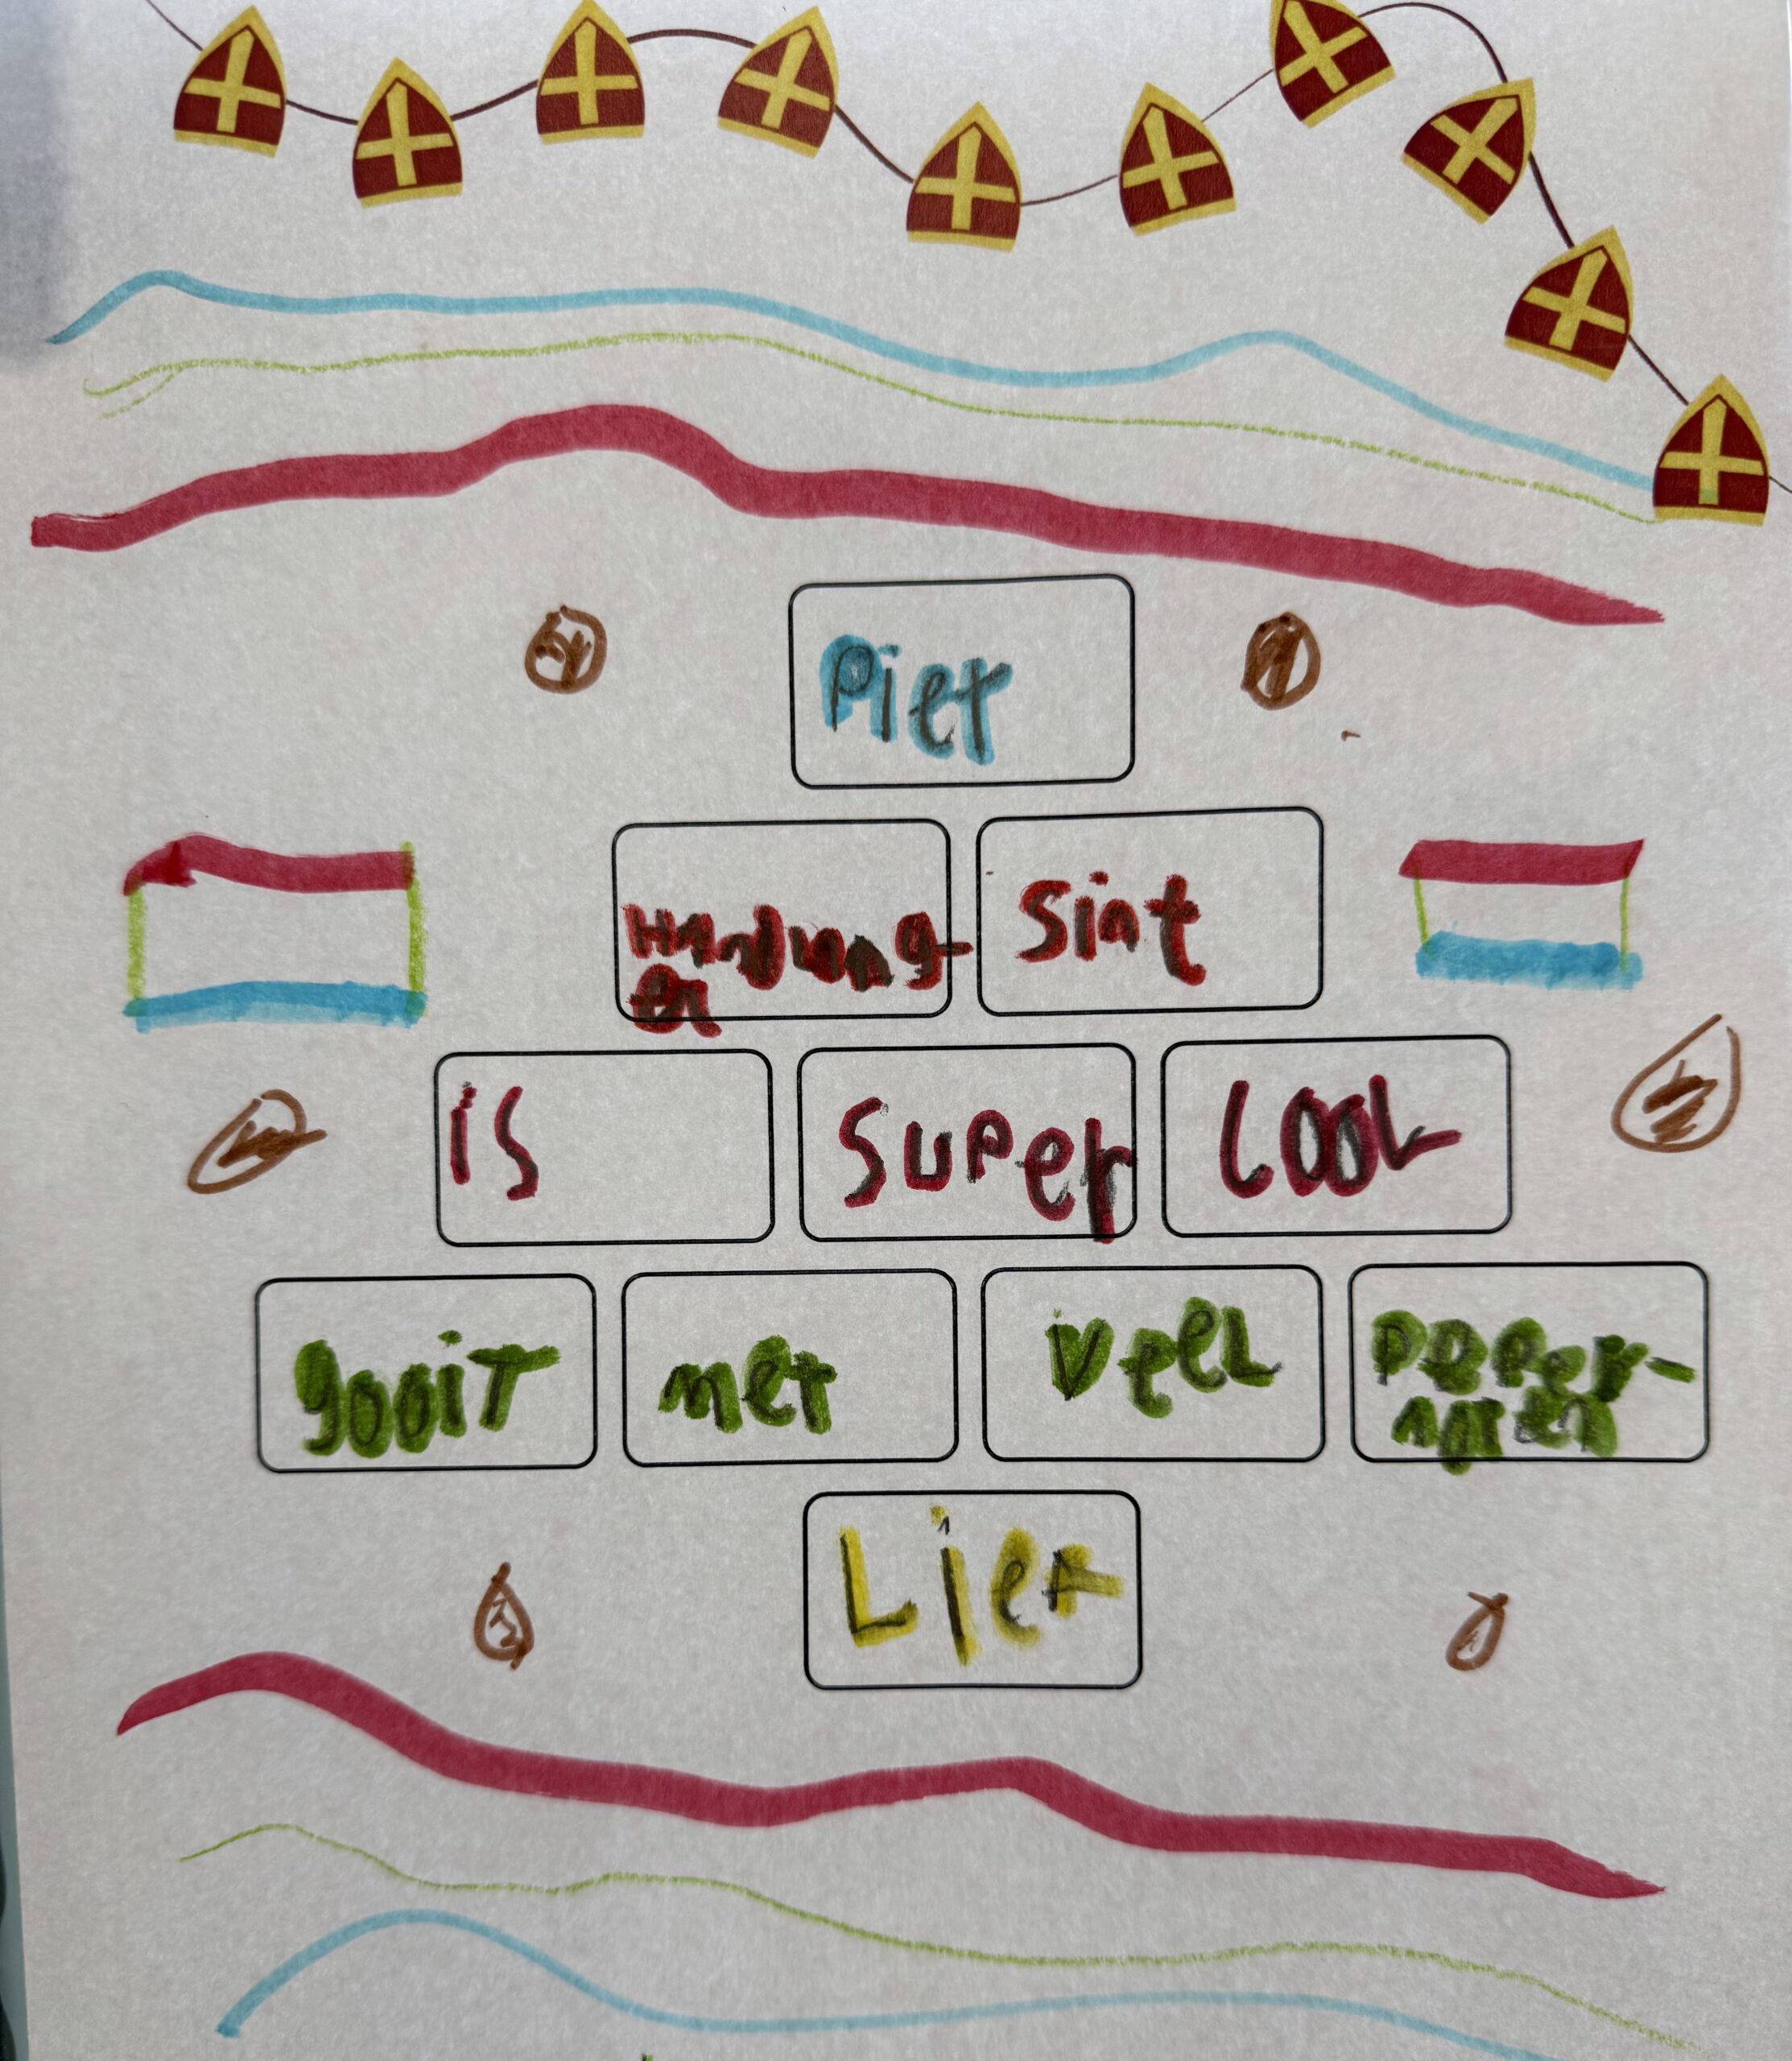 Piet
Handlang-
er Sint
is super cool
gooit met veel peper-
noten
Lief